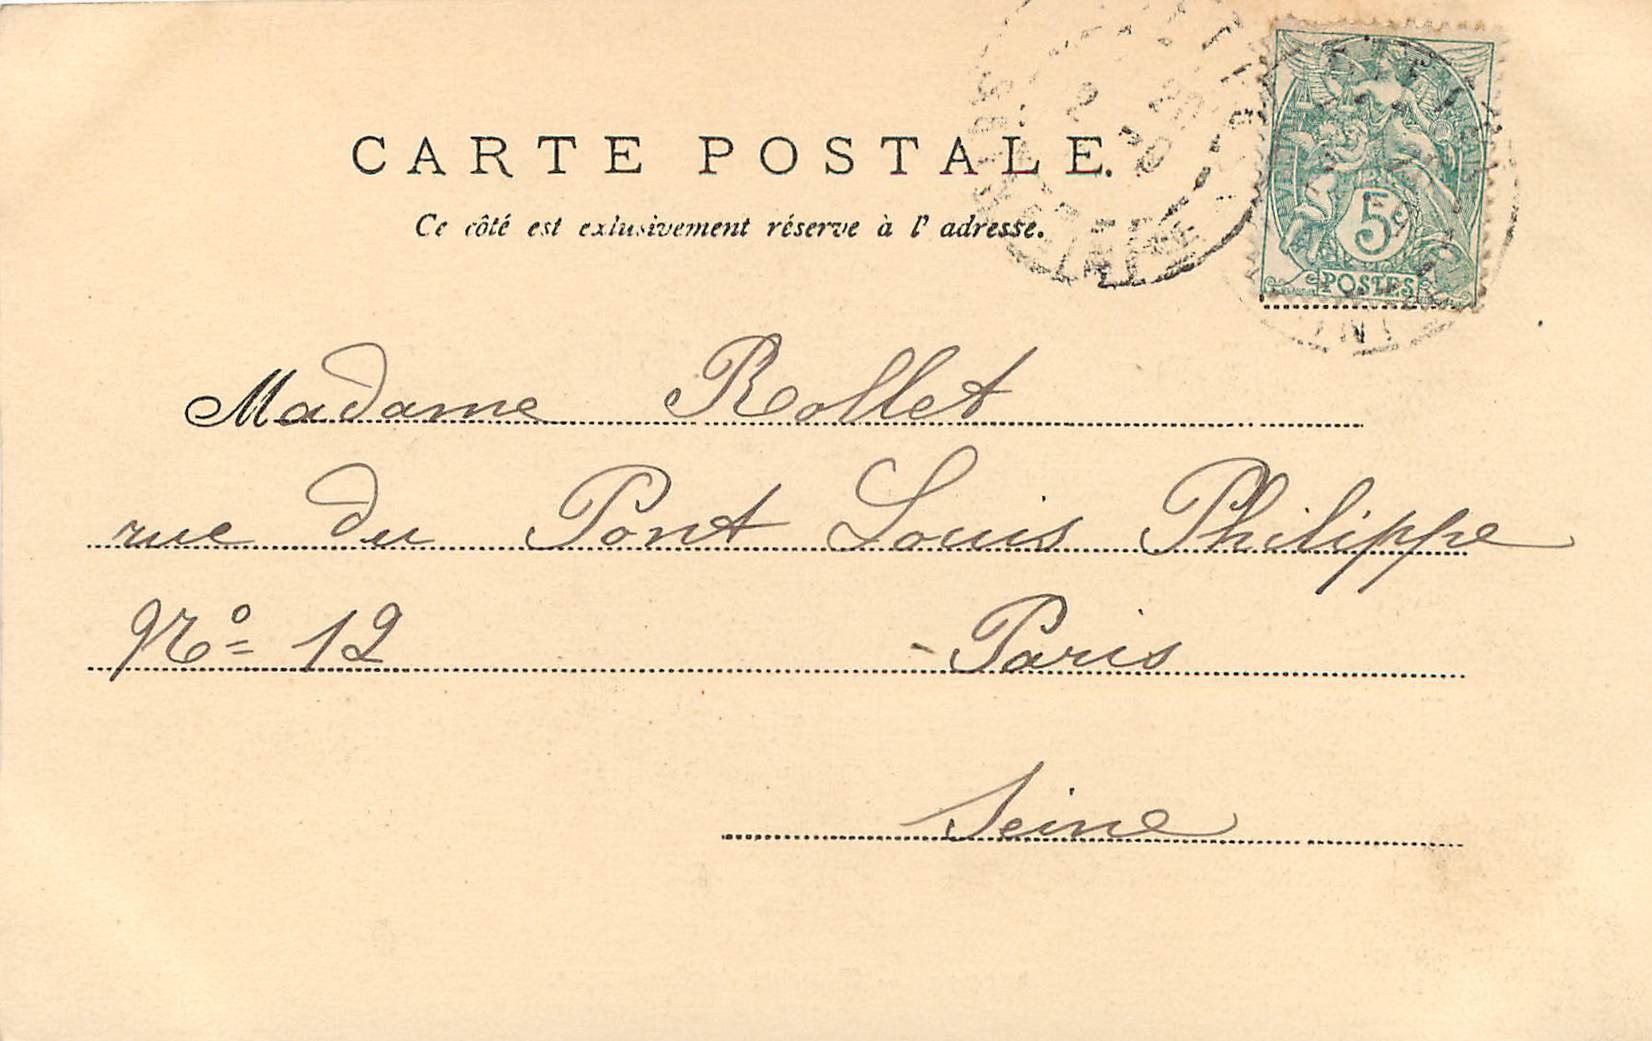 CARTE POSTALE.
Ce côté est exlusivement réserve à l' adresse.
5c
POSTES
Madame Rollet
rue du Pont Louis Philippe
No= 12 - Paris
Seine